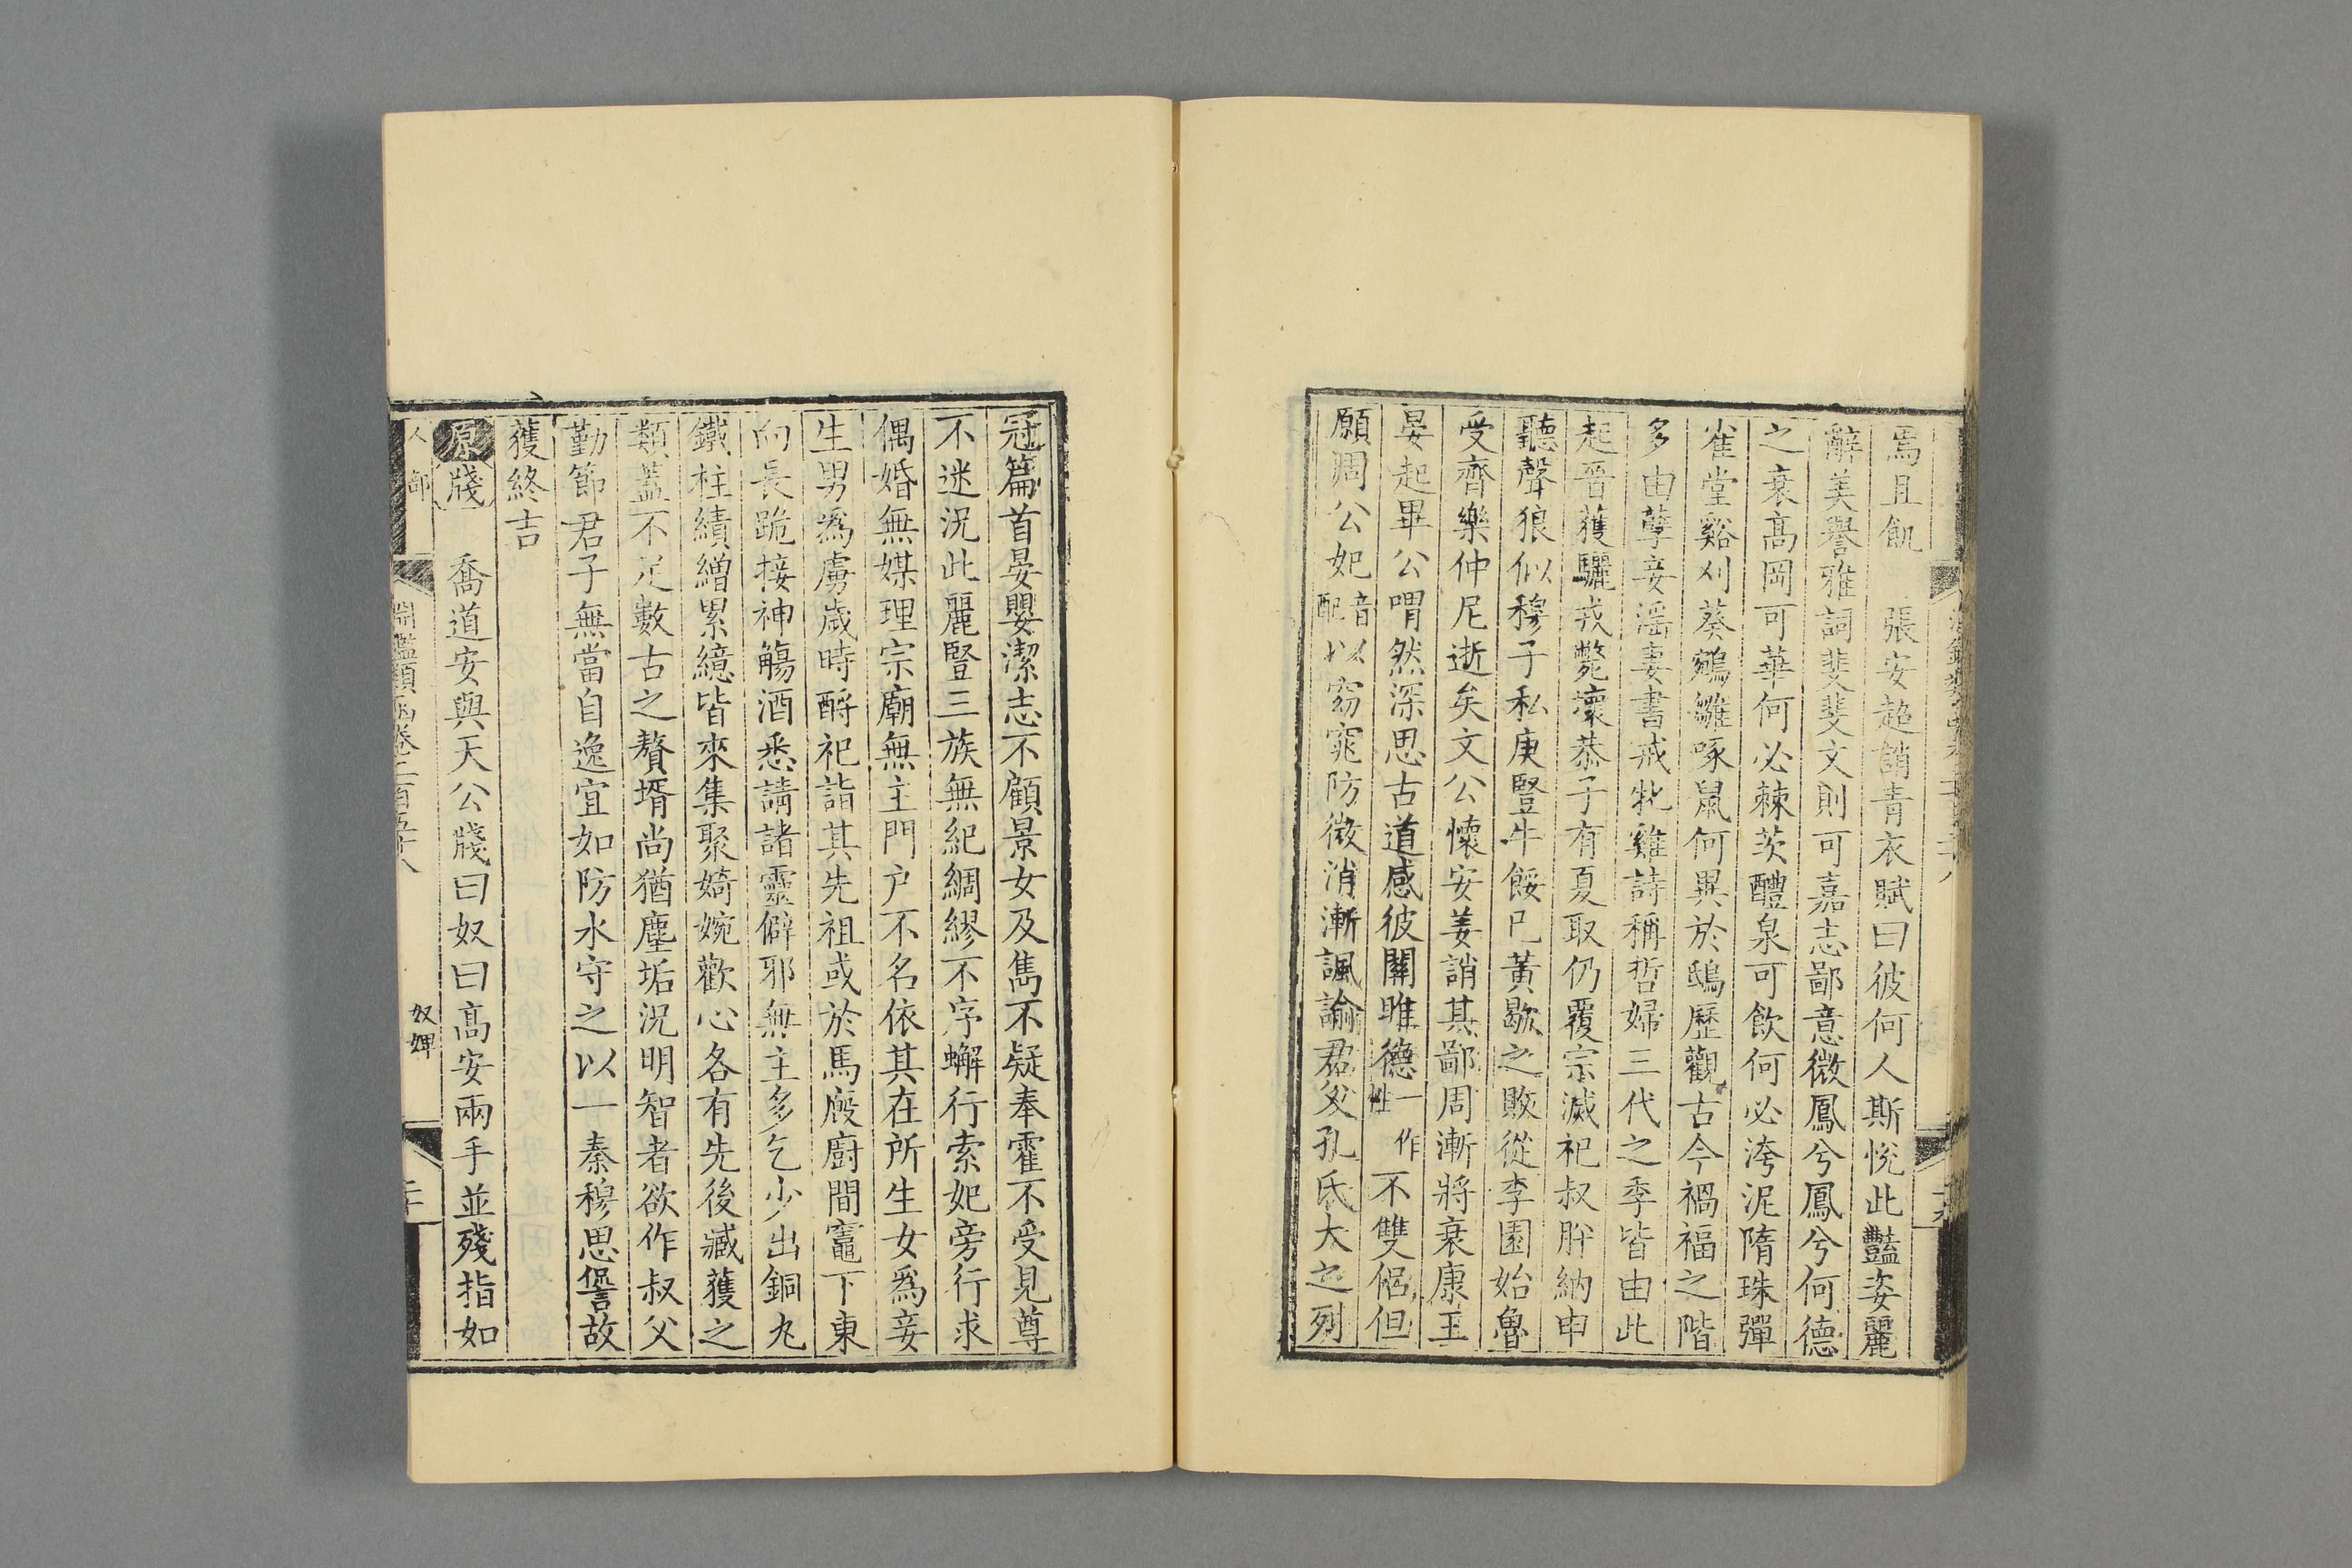 焉且飢　張安超誚青衣賦曰彼何人斯悅此豔姿麗
辭美譽雅詞斐斐文則可嘉志鄙意微鳳兮鳳兮何德
之衰高岡可華何必棘茨醴泉可飲何必洿泥隋珠彈
雀堂谿刈葵鵷雛啄鼠何異於鴟歷觀古今禍福之階
多由孽妾淫妻書戒牝雞詩稱哲婦三代之季皆由此
起晉獲驪戎斃壞恭子有夏取仍覆宗滅祀叔肸納申
聽聲狼似穆子私庚豎牛餒已黃歇之敗從李園始魯
受齊樂仲尼逝矣文公懷安姜誚其鄙周漸將衰康王
晏起畢公喟然深思古道感彼關雎德一作性不雙侶但
願周公妃音配以窈窕防微消漸諷諭君父孔氏大之列
冠篇首晏嬰潔志不顧景女及雋不疑奉霍不受見尊
不迷況此麗豎三族無紀綢繆不序蠏行索妃旁行求
偶婚無媒理宗廟無主門户不名依其在所生女爲妾
生男爲虜歲時酹祀詣其先祖或於馬廄廚間竈下東
向長跪接神觴酒悉請諸靈僻邪無主多乞少出銅丸
鐵柱績繒累繶皆來集聚嫡婉歡心各有先後臧獲之
類蓋不足數古之贅壻尚猶塵垢況明智者欲作叔父
勤節君子無當自逸宜如防水守之以一秦穆思諐故
獲終吉
原牋　喬道安與天公牋曰奴曰高安兩手並殘指如
人部　淵鑑類函卷二百五十八　奴婢　二十